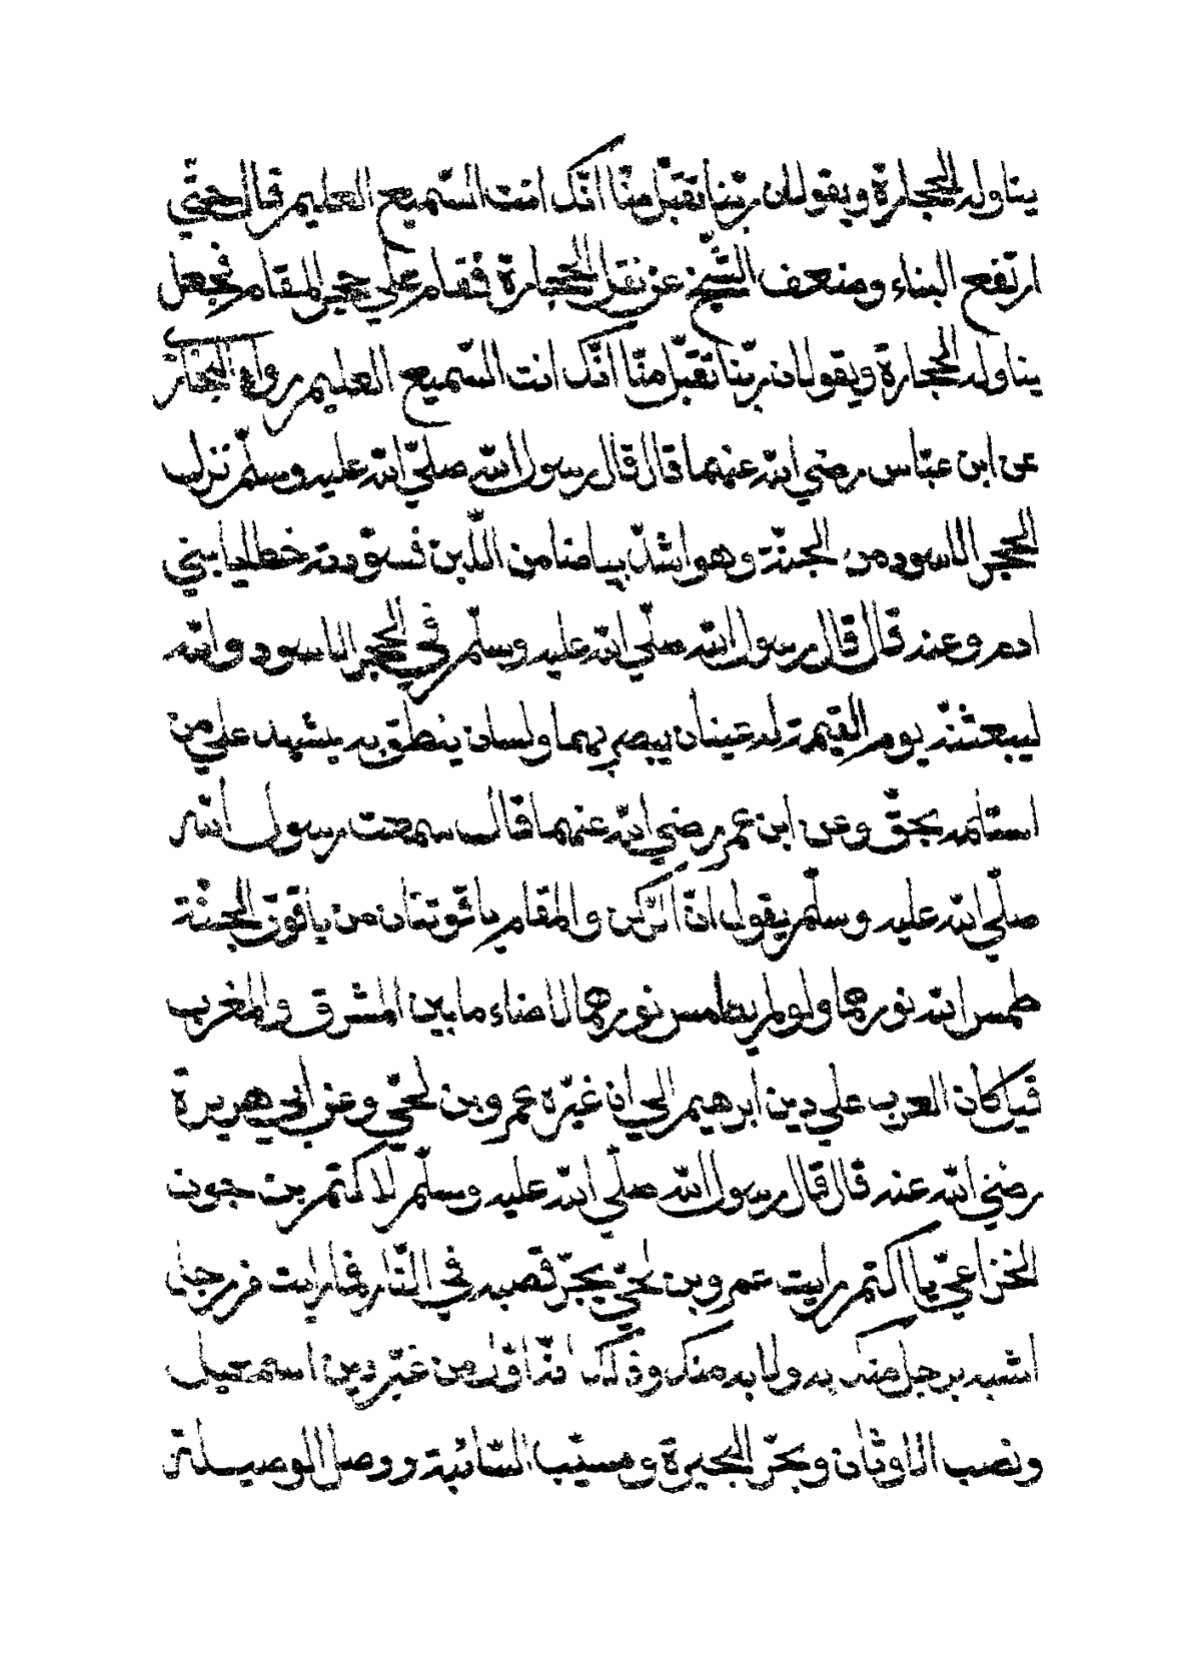 يناوله الحجارة ويقولان ربّنا تقبّل منّا انّك انت السّميع العليم قال حتّي
ارتفع البناء وضعف الشّيخ عن نقل الحجارة فقام علي حجر المقام فجعل
يناوله الحجارة ويقولان ربّنا تقبّل منّا انّك انت السّميع العليم رواه البخاريّ
عن ابن عبّاس رضي الله عنهما قال قال رسول الله صلّي الله عليه وسلّم نزلت
الحجر الاسود من الجنّة وهو اشدّ بياضا من اللّبن فسوّدته خطايا بني
ادم وعنه قال قال رسول الله صلّي الله عليه وسلّم في الحجر الاسود والله
ليبعثنّه يوم القيمة له عينان يبصر بهما ولسان ينطق به يشهد علي من
استلمه بحقّ وعن ابن عمر رضي الله عنهما قال سمعت رسول الله
صلّي الله عليه وسلّم يقول انّ الرّكن والمقام ياقوتتان من ياقوت الجنّة
طمس الله نورهما ولو لم يطمس نورهما لاضاء ما بين المشرق والمغرب
فيا كان العرب علي دين ابرهيم الي ان غيّره عمرو بن لحيّ وعن ابي هريرة
رضي الله عنه قال قال رسول الله صلّي الله عليه وسلّم لاكتم بن جون
الخزاعيّ يا اكتم رايت عمرو بن لحيّ يجرّ قصبه في النّار فما رايت من رجل
اشبه برجل منك به ولا به منك وذلك انّه اوّل من غيّر دين اسمعيل
ونصب الاوثان وبحّر البحيرة وسيّب السّائبة ووصل الوصيلة